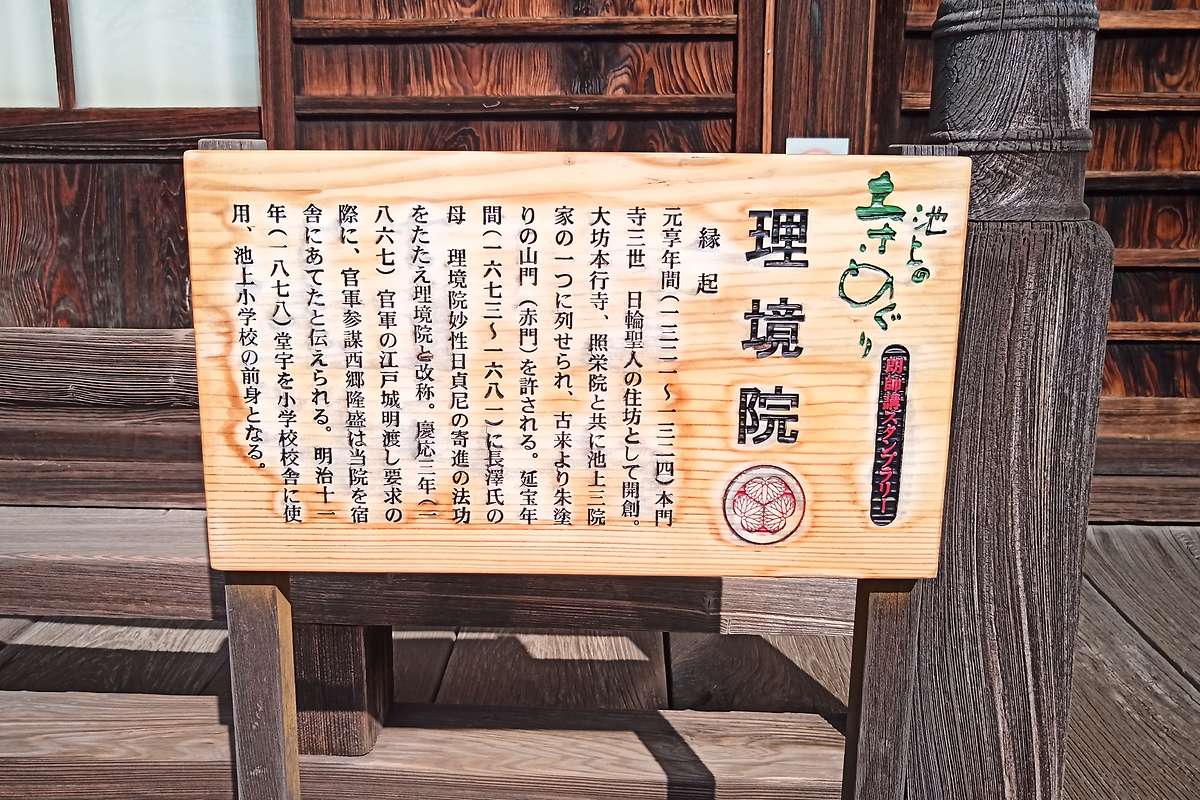 池上の
寺めぐり
朗師講スタンプラリー
理境院
縁起
元亨年間(一三二一〜一三二四)本門
寺三世　日輪聖人の住坊として開創。
大坊本行寺、照栄院と共に池上三院
家の一つに列せられ、古来より朱塗
りの山門（赤門）を許される。延宝年
間(一六七三〜一六八一)に長澤氏の
母　理境院妙性日貞尼の寄進の法功
をたたえ理境院と改称。慶応三年(一
八六七)官軍の江戸城明渡し要求の
際に、官軍参謀西郷隆盛は当院を宿
舎にあてたと伝えられる。明治十一
年(一八七八)堂宇を小学校校舎に使
用、池上小学校の前身となる。